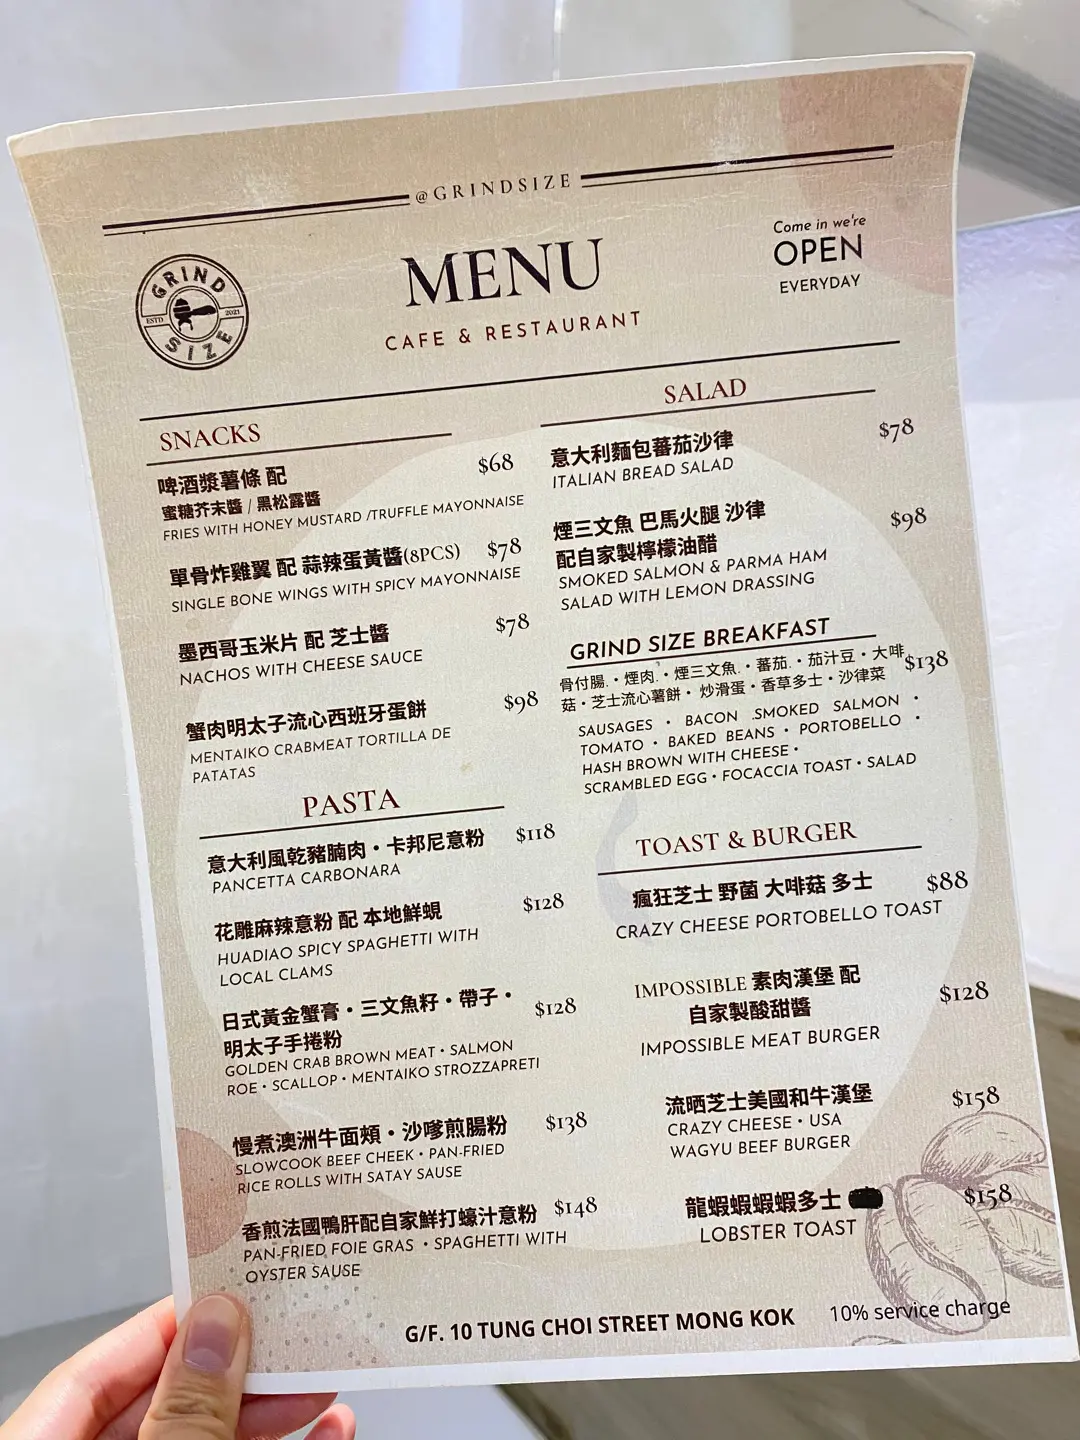 @GRINDSIZE
GRIND
ESTD
2021
SIZE
MENU
CAFE & RESTAURANT
Come in we're
OPEN
EVERYDAY
SNACKS
啤酒漿薯條 配 $68
蜜糖芥末醬 / 黑松露醬
FRIES WITH HONEY MUSTARD /TRUFFLE MAYONNAISE
單骨炸雞翼 配 蒜辣蛋黃醬(8PCS) $78
SINGLE BONE WINGS WITH SPICY MAYONNAISE
墨西哥玉米片 配 芝士醬 $78
NACHOS WITH CHEESE SAUCE
蟹肉明太子流心西班牙蛋餅 $98
MENTAIKO CRABMEAT TORTILLA DE
PATATAS
PASTA
意大利風乾豬腩肉・卡邦尼意粉 $118
PANCETTA CARBONARA
花雕麻辣意粉 配 本地鮮蜆 $128
HUADIAO SPICY SPAGHETTI WITH
LOCAL CLAMS
日式黃金蟹膏・三文魚籽・帶子・ $128
明太子手捲粉
GOLDEN CRAB BROWN MEAT・SALMON
ROE・SCALLOP・MENTAIKO STROZZAPRETI
慢煮澳洲牛面頰・沙嗲煎腸粉 $138
SLOWCOOK BEEF CHEEK・PAN-FRIED
RICE ROLLS WITH SATAY SAUSE
香煎法國鴨肝配自家鮮打蠔汁意粉 $148
PAN-FRIED FOIE GRAS ・SPAGHETTI WITH
OYSTER SAUSE
SALAD
意大利麵包蕃茄沙律 $78
ITALIAN BREAD SALAD
煙三文魚 巴馬火腿 沙律 $98
配自家製檸檬油醋
SMOKED SALMON & PARMA HAM
SALAD WITH LEMON DRASSING
GRIND SIZE BREAKFAST
骨付腸.・煙肉.・煙三文魚.・蕃茄.・茄汁豆・大啡 $138
菇・芝士流心薯餅・ 炒滑蛋・香草多士・沙律菜
SAUSAGES ・ BACON .SMOKED SALMON ・
TOMATO ・ BAKED BEANS ・ PORTOBELLO ・
HASH BROWN WITH CHEESE・
SCRAMBLED EGG・FOCACCIA TOAST・SALAD
TOAST & BURGER
瘋狂芝士 野菌 大啡菇 多士 $88
CRAZY CHEESE PORTOBELLO TOAST
IMPOSSIBLE 素肉漢堡 配 $128
自家製酸甜醬
IMPOSSIBLE MEAT BURGER
流晒芝士美國和牛漢堡 $158
CRAZY CHEESE・USA
WAGYU BEEF BURGER
龍蝦蝦蝦蝦多士 $158
LOBSTER TOAST
G/F. 10 TUNG CHOI STREET MONG KOK
10% service charge